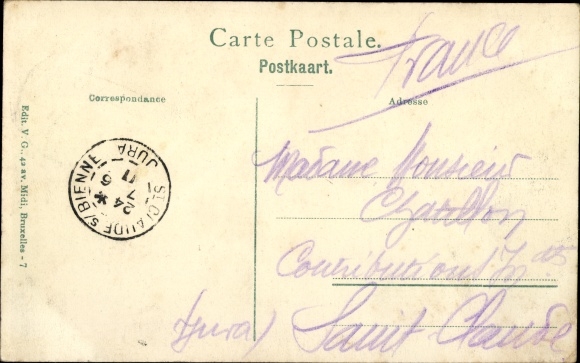 Carte Postale.
Postkaart.
France
Correspondance
Adresse
Edit. V. G., 42 av. Midi, Bruxelles - 7
ST CLAUDE S/ BIENNE
JURA
* 24
7
11
Madame Monsieur
Contributions
(Jura) Saint Claude